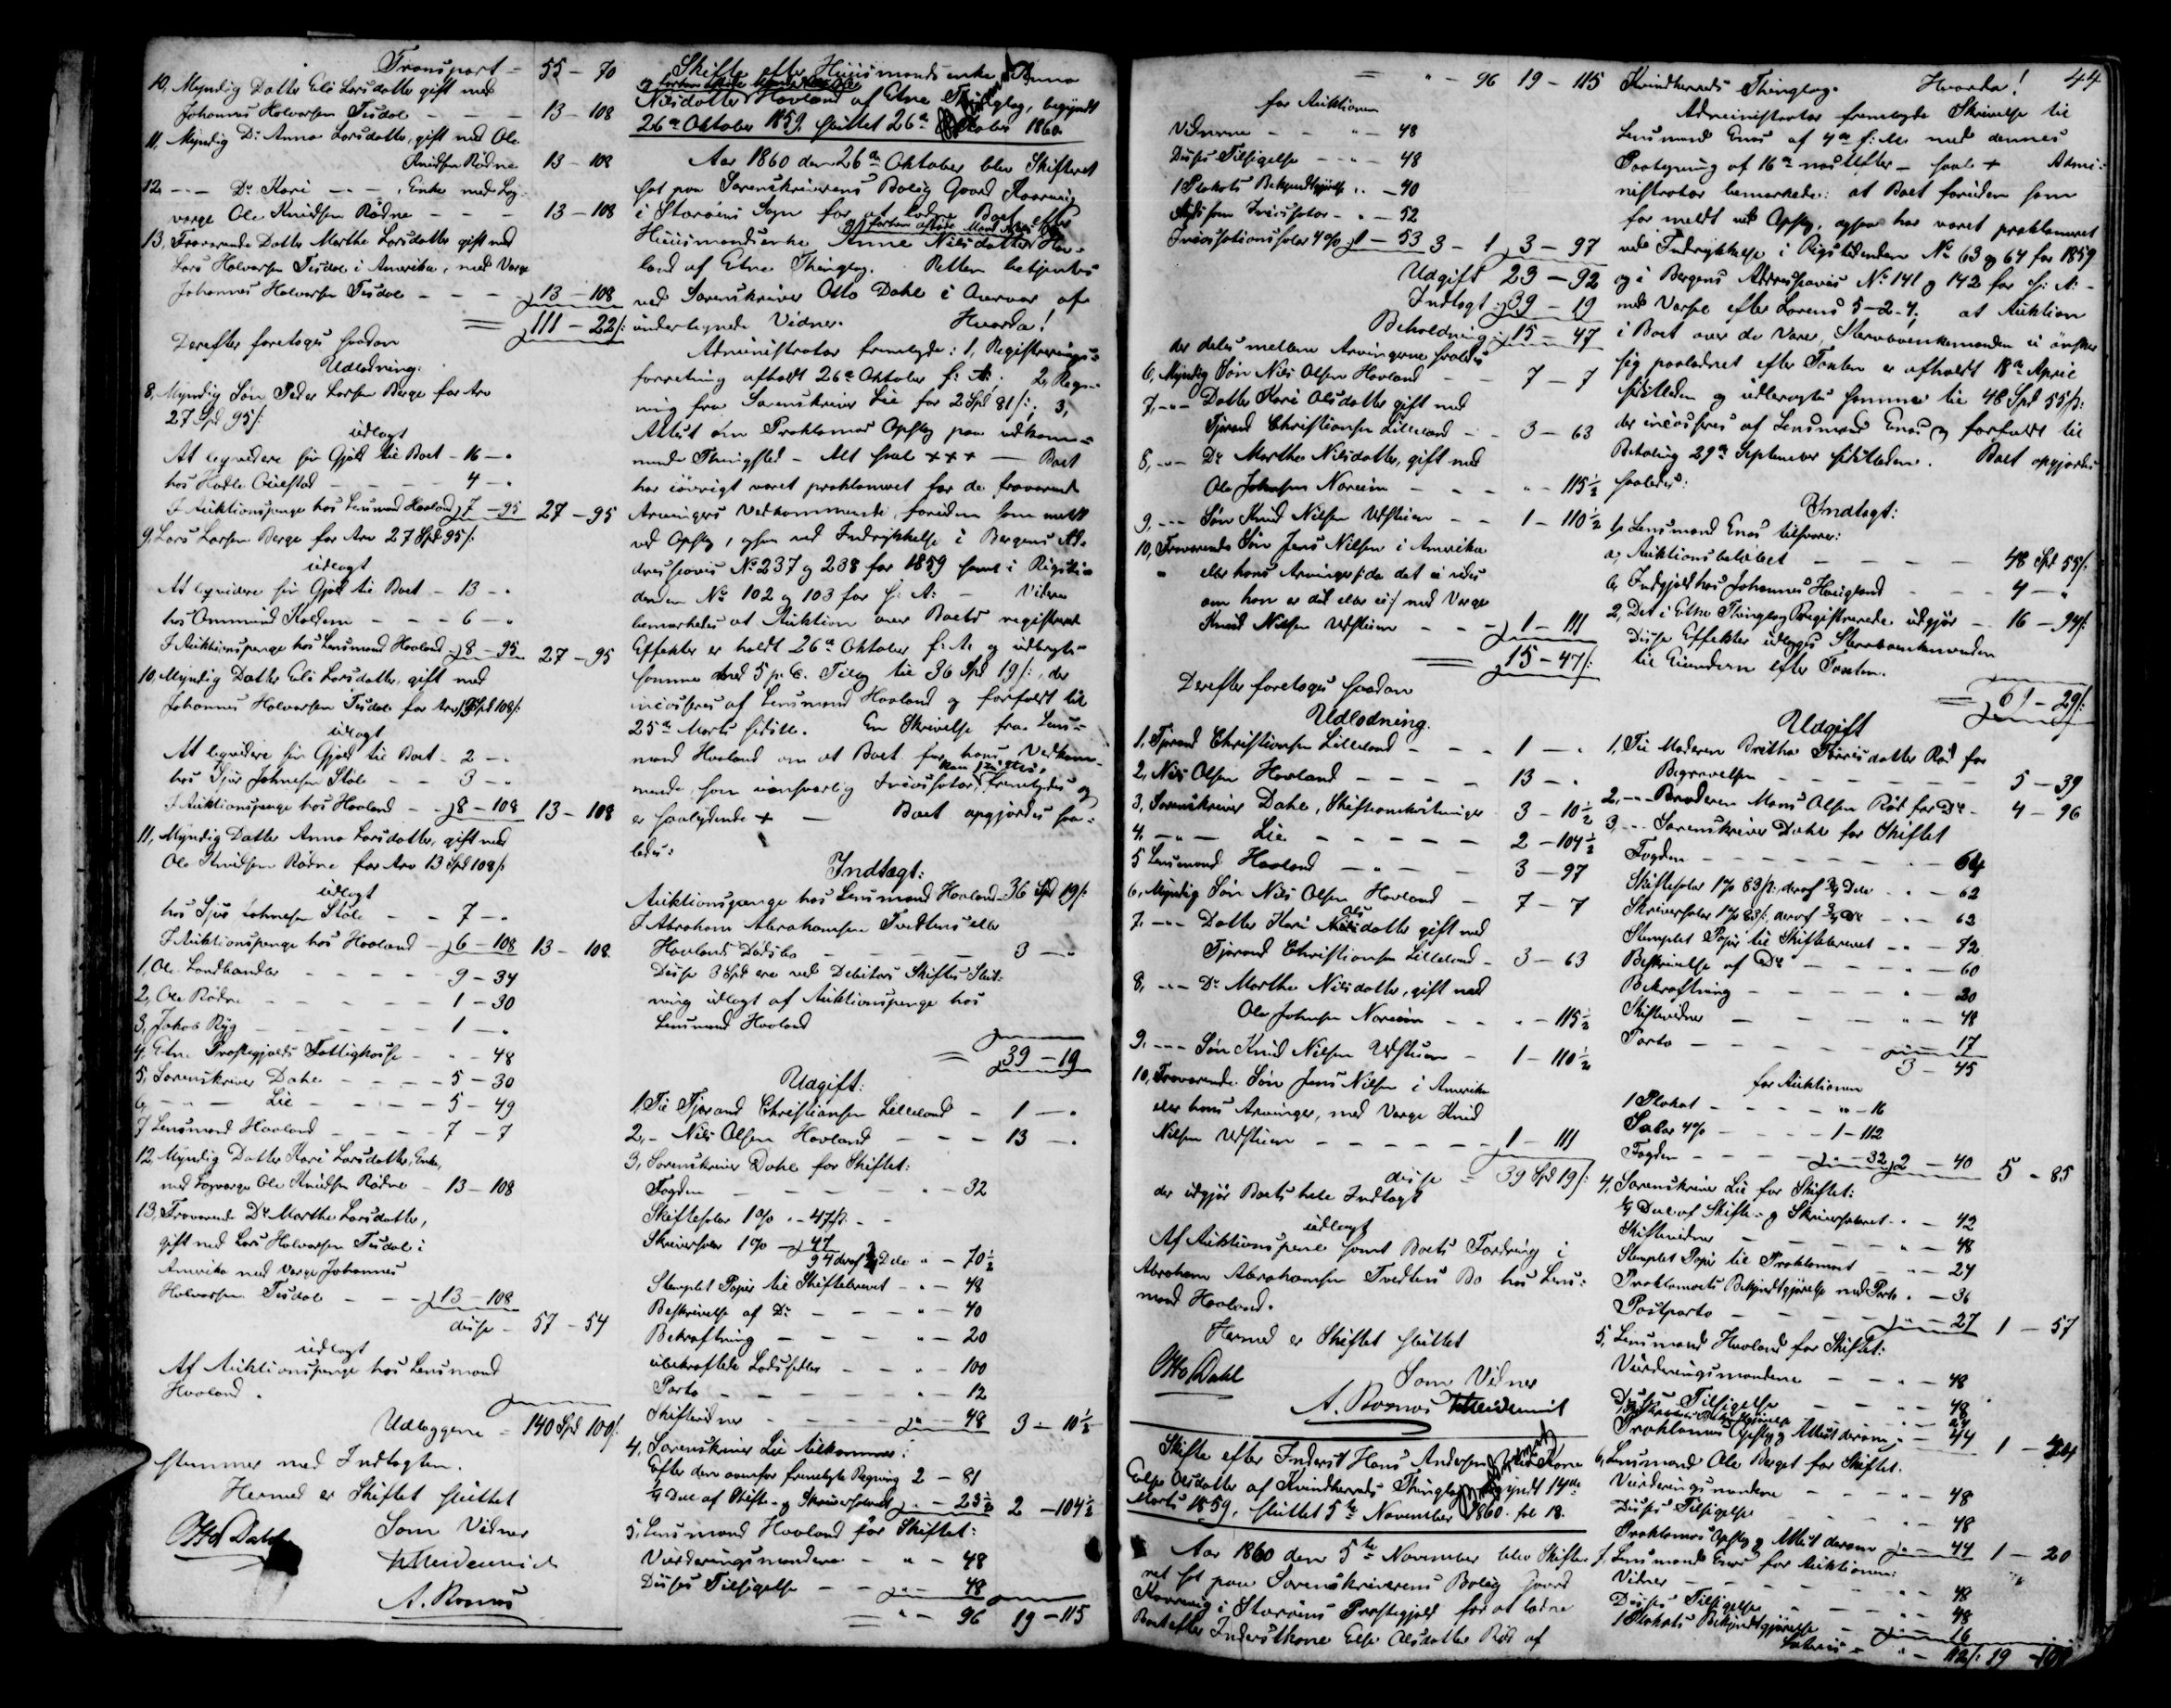 Transport – 55 – 70
10, Myndig Datter Eli Larsdatter gift med
Johannes Halvorsen Tesdal – – – 13 – 108
11, Myndig Dr. Anna Larsdatter, gift med Ole
Knudsen Rødne 13 – 108
12, – „ – Dr. Kari – „ – , Enke med Lag-
værge Ole Knudsen Rødne – – – 13 – 108
13, Fraværende Datter Marthe Larsdatter gift med
Lars Halvorsen Tesdal i Amerika, med Værge
Johannes Halvorsen Tesdal – – – 13 – 108
= 111 – 22 /:
Derefter foretoges saadan
Udlodning.
8, Myndig Søn Peder Larsen Berge for Arv
27 Spd 95 /:
udlagt
At liqvidere sin Gjæld til Boet – 16 – „
hos – – – 4 – „
I Auktionspenge hos Lensmand Havland 7 – 95 27 – 95
9, Lars Larsen Berge for Arv 27 Spd 95 /:
udlagt
At liqvidere sin Gjæld til Boet – 13 – „
hos Ommund – – – 6 – „
I Auktionspenge hos Lensmand Havland 8 – 95 27 – 95
10, Myndig Datter Eli Larsdatter, gift med
Johannes Halvorsen Tesdal for Arv 13 Spd 108 /:
udlagt
At liqvidere sin Gjæld til Boet – 2 – „
hos Sjur Johnesen Støle – – 3 – „
I Auktionspenge hos Havland – – 8 – 108 13 – 108
11, Myndig Datter Anna Larsdatter, gift med
Ole Knudsen Rødne for Arv 13 Spd 108 /:
udlagt
hos Sjur Johnesen Støle – – 7 – „
I Auktionspenge hos Havland – 6 – 108 13 – 108
1, Ole Landhandler – – – – 9 – 34
2, Ole Rødne – – – – – 1 – 30
3, Jakob Ryg – – – – – 1 – „
4, Etne Præstegjelds Fattigkasse – „ – 48
5, Sorenskriver Dahl – – – – 5 – 30
6, – „ – Lie – – – – 5 – 49
7 Lensmand Havland – – – – 7 – 7
12, Myndig Datter Kari Larsdatter, Enke,
med Lagværge Ole Knudsen Rødne – 13 – 108
13, Fraværende Dr. Marthe Larsdatter,
gift med Lars Halvorsen Tesdal i
Amerika med Værge Johannes
Halvorsen Tesdal – – – 13 – 108
disse – 57 – 54
udlagt
Af Auktionspenge hos Lensmand
Havland.
Udlæggene – 140 Spd 100 /:
stemmer med Indtægten.
Hermed er Skiftet sluttet
Otto Dahl Som Vidner
A. Romsøs

Skifte efter Huusmandsenke Anna
Nilsdatter Havland af Etne Thinglag, begyndt
26de Oktober 1859, sluttet 26de Oktober 1860.
Aar 1860 den 26de Oktober blev Skifteret
sat paa Sorenskriverens Bolig Gaard
i Storøens Sogn for at Boet efter
Huusmandsenke Anne Nilsdatter Hav-
land af Etne Thinglag. Retten betjentes
ved Sorenskriver Otto Dahl i Overvær af
undertegnede Vidner. Hvorda!
Administrator fremlagde: 1, Registrerings-
forretning afholdt 26de Oktober f: A:. 2, Regn-
ing fra Sorenskriver Lie for 2 Spd 81 /:; 3,
Attest om Proklamas Opslag paa vedkom-
mende Thingsted – Alt saal + + + – Boet
har iøvrigt været proklameret for de fraværende
Arvingers Vedkommende foruden som meldt
ved Opslag, ogsaa ved Indrykkelse i Bergens Ad-
dresseavis No 237 og 238 for 1859 samt i Rigsti-
denden No 102 og 103 for s: A: – Videre
bemærkedes at Auktion over Boets registrerede
Effekter er holdt 26de Oktober f. A. og udbragte
Summen med 5 p. C. Tillæg til 36 Spd 19 /:, der
incasseres af Lensmand Havland og forfaldt til
25de Marts sidstl. En Skrivelse fra Lens-
mand Havland om at Boet for hans Vedkom-
mende, som uansvarlig Incassator, kan sluttes, fremlagdes og
er saalydende + – Boet opgjordes saa-
ledes:
Indtægt:
Auktionspenge hos Lensmand Havland – 36 Spd 19 /:
I Abraham Abrahamsen Tvedtens eller
Havlands Dødsbo – – – 3 – „
Disse 3 Spd ere ved Debitors Skiftes Slut-
ning udlagt af Auktionspenge hos
Lensmand Havland
= 39 – 19
Udgift:
1, Til Tjerand Christiansen Lilleland – 1 – „
2, – Nils Olsen Havland – – – 13 – „
3, Sorenskriver Dahl for Skiftet:
Fogden – – – – „ – 32
Skiftesalær 1 % „ – 47 /: – –
Skriversalær 1 % – 47
94 deraf 3/4 Dele „ – 70 1/2
Stemplet Papir til Skiftebrevet – „ – 48
Beskrivelse af Dr. – – – „ – 40
Bekræftning – – – – „ – 20
ubekræftede Lodsedler – – „ – 100
Porto – – – – – „ – 12
Skiftevidner – – – – „ – 48 3 – 10 1/2
4, Sorenskriver Lie tilkommer:
Efter den ovenfor fremlagte Regning 2 – 81
1/4 Deel af Skifte- og Skriversalæret „ – 23 1/2 2 – 104 1/2
5, Lensmand Havland for Skiftet:
Vurderingsmændene – „ – 48
Disses Tilsigelse – – „ – 48
= „ – 96 19 – 115

= „ – 96 19 – 115
for Auktionen
Vidnerne – – „ – 48
Disses Tilsigelse – – „ – 48
1 Plakats Bekjendtgjørelse „ – 40
– „ – 52
Incassationssalær 4 % 1 – 53 3 – 1 3 – 97
Udgift 23 – 92
Indtægt 39 – 19
Beholdning 15 – 47
der deles mellem Arvingerne saaledes
6, Myndig Søn Nils Olsen Havland – 7 – 7
7, – „ – Datter Kari Olsdatter gift med
Tjerand Christiansen Lilleland – – 3 – 63
8, – „ – Dr. Marthe Nilsdatter, gift med
Ole Johnsen Noreim – – – „ – 115 1/2
9, – „ – Søn Knud Nilsen – – 1 – 110 1/2
10, Fraværende Søn Jens Nilsen i Amerika
eller hans Arvinger /: da det ei vides
om han er død eller ei :/ med Værge
Knud Nilsen – – – 1 – 111
= 15 – 47 /:
Derefter foretoges saadan
Udlodning.
1, Tjerand Christiansen Lilleland – – – 1 – „
2, Nils Olsen Havland – – – – 13 – „
3, Sorenskriver Dahl, Skifteomkostninger – 3 – 10 1/2
4, – „ – Lie – – – – – 2 – 104 1/2
5 Lensmand Havland – „ – – 3 – 97
6, Myndig Søn Nils Olsen Havland – 7 – 7
7, – „ – Datter Kari Olsdatter gift med
Tjerand Christiansen Lilleland – 3 – 63
8, – „ – Dr. Marthe Nilsdatter, gift med
Ole Johnsen Noreim – – – „ – 115 1/2
9, – „ – Søn Knud Nilsen – 1 – 110 1/2
10, Fraværende Søn Jens Nilsen i Amerika
eller hans Arvinger, med Værge Knud
Nilsen – – – – – – 1 – 111
disse – 39 Spd 19 /:
der udgjør Boets hele Indtægt
udlagt
Af Auktionspenge samt Boets Fordring i
Abraham Abrahamsen Tvedtens Bo hos Lens-
mand Havland.
Hermed er Skiftet sluttet
Otto Dahl Som Vidner
A. Romsøs
Skifte efter Inderst Hans Andersen Kone
Else Olsdatter af Kvindherreds Thinglag, begyndt 14de
Marts 1859, sluttet 5te November 1860. fol 18.
Aar 1860 den 5te November blev Skifte-
ret sat paa Sorenskriverens Bolig Gaard
i Storøens Præstegjeld for at
Boet efter Inderstkone Else Olsdatter Rød af

44
Kvindherreds Thinglag. Hvorda!
Administrator fremlagde Skrivelse til
Lensmand Enæs af 4de f: M. med dennes
Paategning af 16de næstefter – saal. + Admi-
nistrator bemærkede: at Boet foruden som
for meldt ved Opslag, ogsaa har været proklameret
ved Indrykkelse i Rigstidenden No 63 og 64 for 1859
og i Bergens Addresseavis No 141 og 142 for s: A: –
med Varsel efter Lovens 5–2–4; at Auktion
i Boet over de Varer, Stervboenkemanden ei ønsker
sig paalodnet efter Taxten er afholdt 18de April
sidstleden og udbragtes Summen til 48 Spd 55 /:
der incasseres af Lensmand Enæs og forfaldt til
Betaling 29de September sidstleden. Boet opgjordes
saaledes:
Indtægt:
1, Lensmand Enæs tilsvarer:
a, Auktionsbeløbet – – – – – 48 Spd 55 /:
b, Indgjæld hos Johannes Haugland – – – 4 – „
2, Det i Etne Thinglag Registrerede udgjør – 16 – 94 /:
Disse Effekter udlægges Stervboenkemanden
til Eiendom efter Taxten.
= 69 – 29 /:
Udgift
1, Til Moderen Brithe Tørrisdatter Rød for
Begravelsen – – – – – – – 5 – 39
2, – „ – Broderen Mons Olsen Rød for Dr. – 4 – 96
3, – „ – Sorenskriver Dahl for Skiftet
Fogden – – – – – – – „ – 64
Skiftesalær 1 % 83 /: deraf 3/4 Dele – „ – 62
Skriversalær 1 % 83 /: deraf 3/4 Dr. – „ – 62
Stemplet Papir til Skiftebrevet – „ – 72
Beskrivelse af Dr. – – – – „ – 60
Bekræftning – – – – – „ – 20
Skiftevidner – – – – – „ – 48
Porto – – – – – – – „ – 17
3 – 45
for Auktionen
1 Plakat – – – – – „ – 16
Salær 4 % – – – – 1 – 112
Fogden – – – – – „ – 32 2 – 40 5 – 85
4, Sorenskriver Lie for Skiftet:
1/4 Deel af Skifte- og Skriversalæret – „ – 42
Skiftevidner – – – – – „ – 48
Stemplet Papir til Proklamaet – „ – 24
Proklamaets Bekjendtgjørelse med Porto „ – 36
Postporto – – – – – „ – 27 1 – 57
5, Lensmand Havland for Skiftet:
Vurderingsmændene – – – „ – 48
Disses Tilsigelse – – – „ – 48
Proklamas Opslag og Attest derom „ – 44 1 –
6, Lensmand Ole Berget for Skiftet.
Vurderingsmændene – – – „ – 48
Disses Tilsigelse – – – „ – 48
Proklamas Opslag og Attest derom „ – 44 1 – 20
7, Lensmand Enæs for Auktionen:
Vidner – – – – – – „ – 48
Disses Tilsigelse – – – – „ – 48
1 Plakats Bekjendtgjørelse – „ – 16
„ – 112 /: 19 –